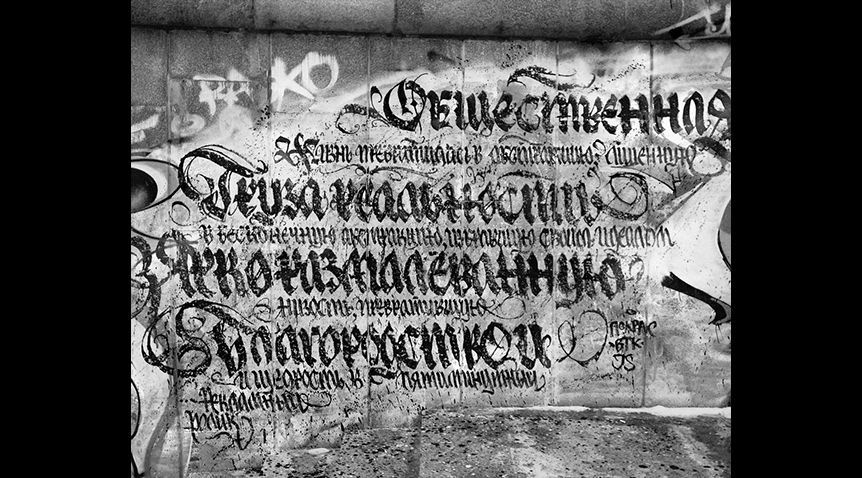 КО
Общественная
жизнь превратилась в абстракцию, лишенную
Груза реальности
в бесконечную абстракцию, избравшую своим идеалом
Ярко размалеванную
низость, превратившую
Благородство и
и щедрость, в пятиминутный
рекламный
ролик
ПОКРАС
ВТК
JS